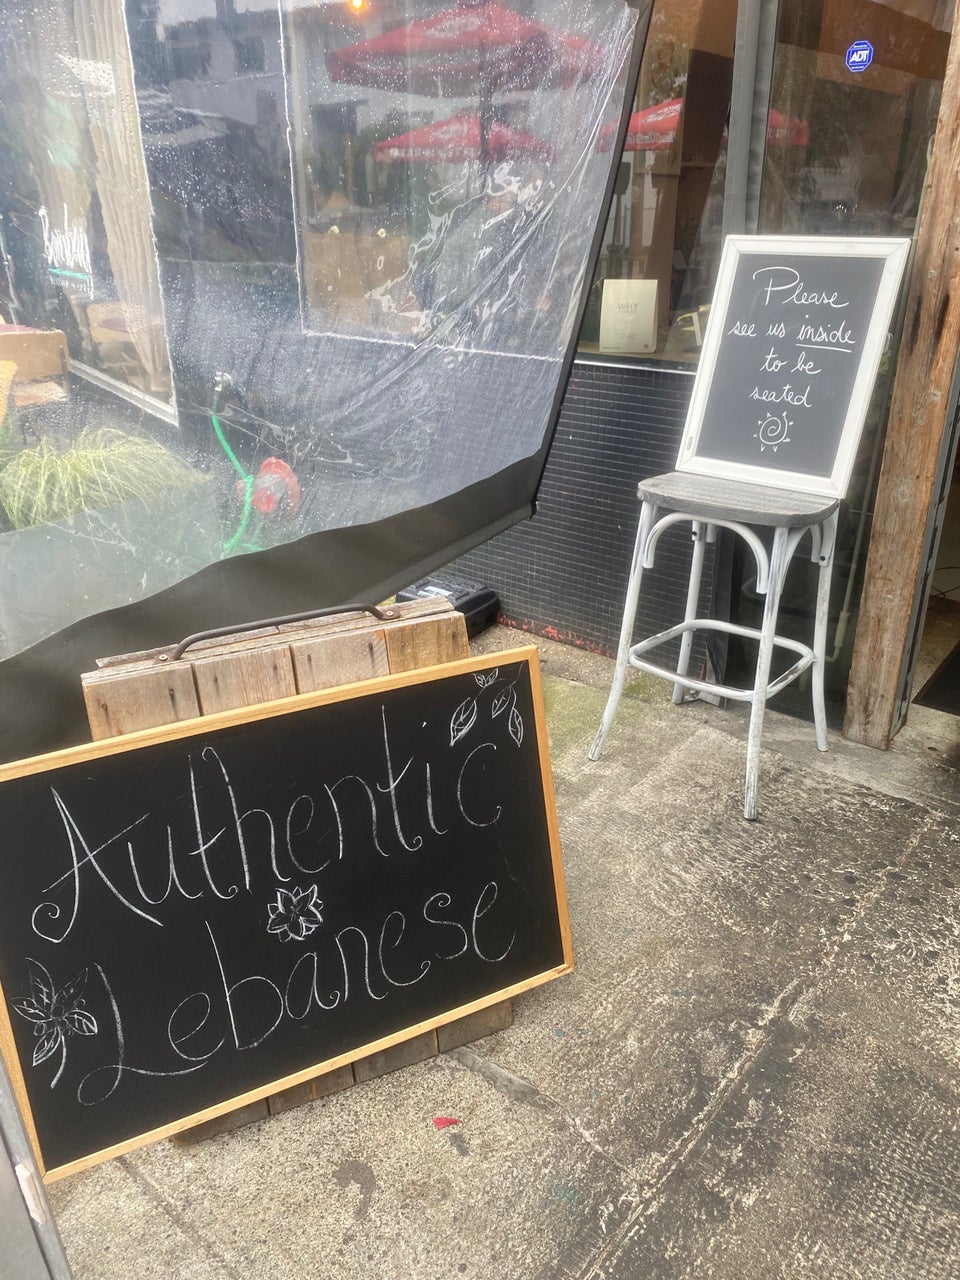 ADT
WHY
Please
see us inside
to be
seated
Authentic
Lebanese